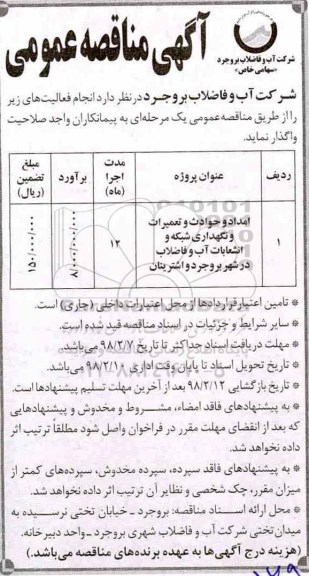 آگهی مناقصه عمومی
شرکت آب و فاضلاب بروجرد
«سهامی خاص»
شرکت آب و فاضلاب بروجرد در نظر دارد انجام فعالیت‌های زیر
را از طریق مناقصه عمومی یک مرحله‌ای به پیمانکاران واجد صلاحیت
واگذار نماید.
ردیف
عنوان پروژه
مدت اجرا (ماه)
برآورد
مبلغ تضمین (ریال)
۱
امداد و حوادث و تعمیرات
و نگهداری شبکه و
انشعابات آب و فاضلاب
در شهر بروجرد و اشترینان
۱۲
۸/۰۰۰/۰۰۰/۰۰۰
۱۵۰/۰۰۰/۰۰۰
* تامین اعتبار قراردادها از محل اعتبارات داخلی (جاری) است.
* سایر شرایط و جزئیات در اسناد مناقصه قید شده است.
* مهلت دریافت اسناد حداکثر تا تاریخ ۹۸/۲/۷ می‌باشد.
* تاریخ تحویل اسناد تا پایان وقت اداری ۹۸/۲/۱۰ می‌باشد.
* تاریخ بازگشایی ۹۸/۲/۱۲ بعد از آخرین مهلت تسلیم پیشنهادها است.
* به پیشنهادهای فاقد امضاء، مشروط و مخدوش و پیشنهادهایی
که بعد از انقضای مهلت مقرر در فراخوان واصل شود مطلقاً ترتیب اثر
داده نخواهد شد.
* به پیشنهادهای فاقد سپرده، سپرده مخدوش، سپرده‌های کمتر از
میزان مقرر، چک شخصی و نظایر آن ترتیب اثر داده نخواهد شد.
* محل ارائه اسناد مناقصه: بروجرد ـ خیابان تختی نرسیده به
میدان تختی شرکت آب و فاضلاب شهری بروجرد ـ واحد دبیرخانه.
(هزینه درج آگهی‌ها به عهده برنده‌های مناقصه می‌باشد.)